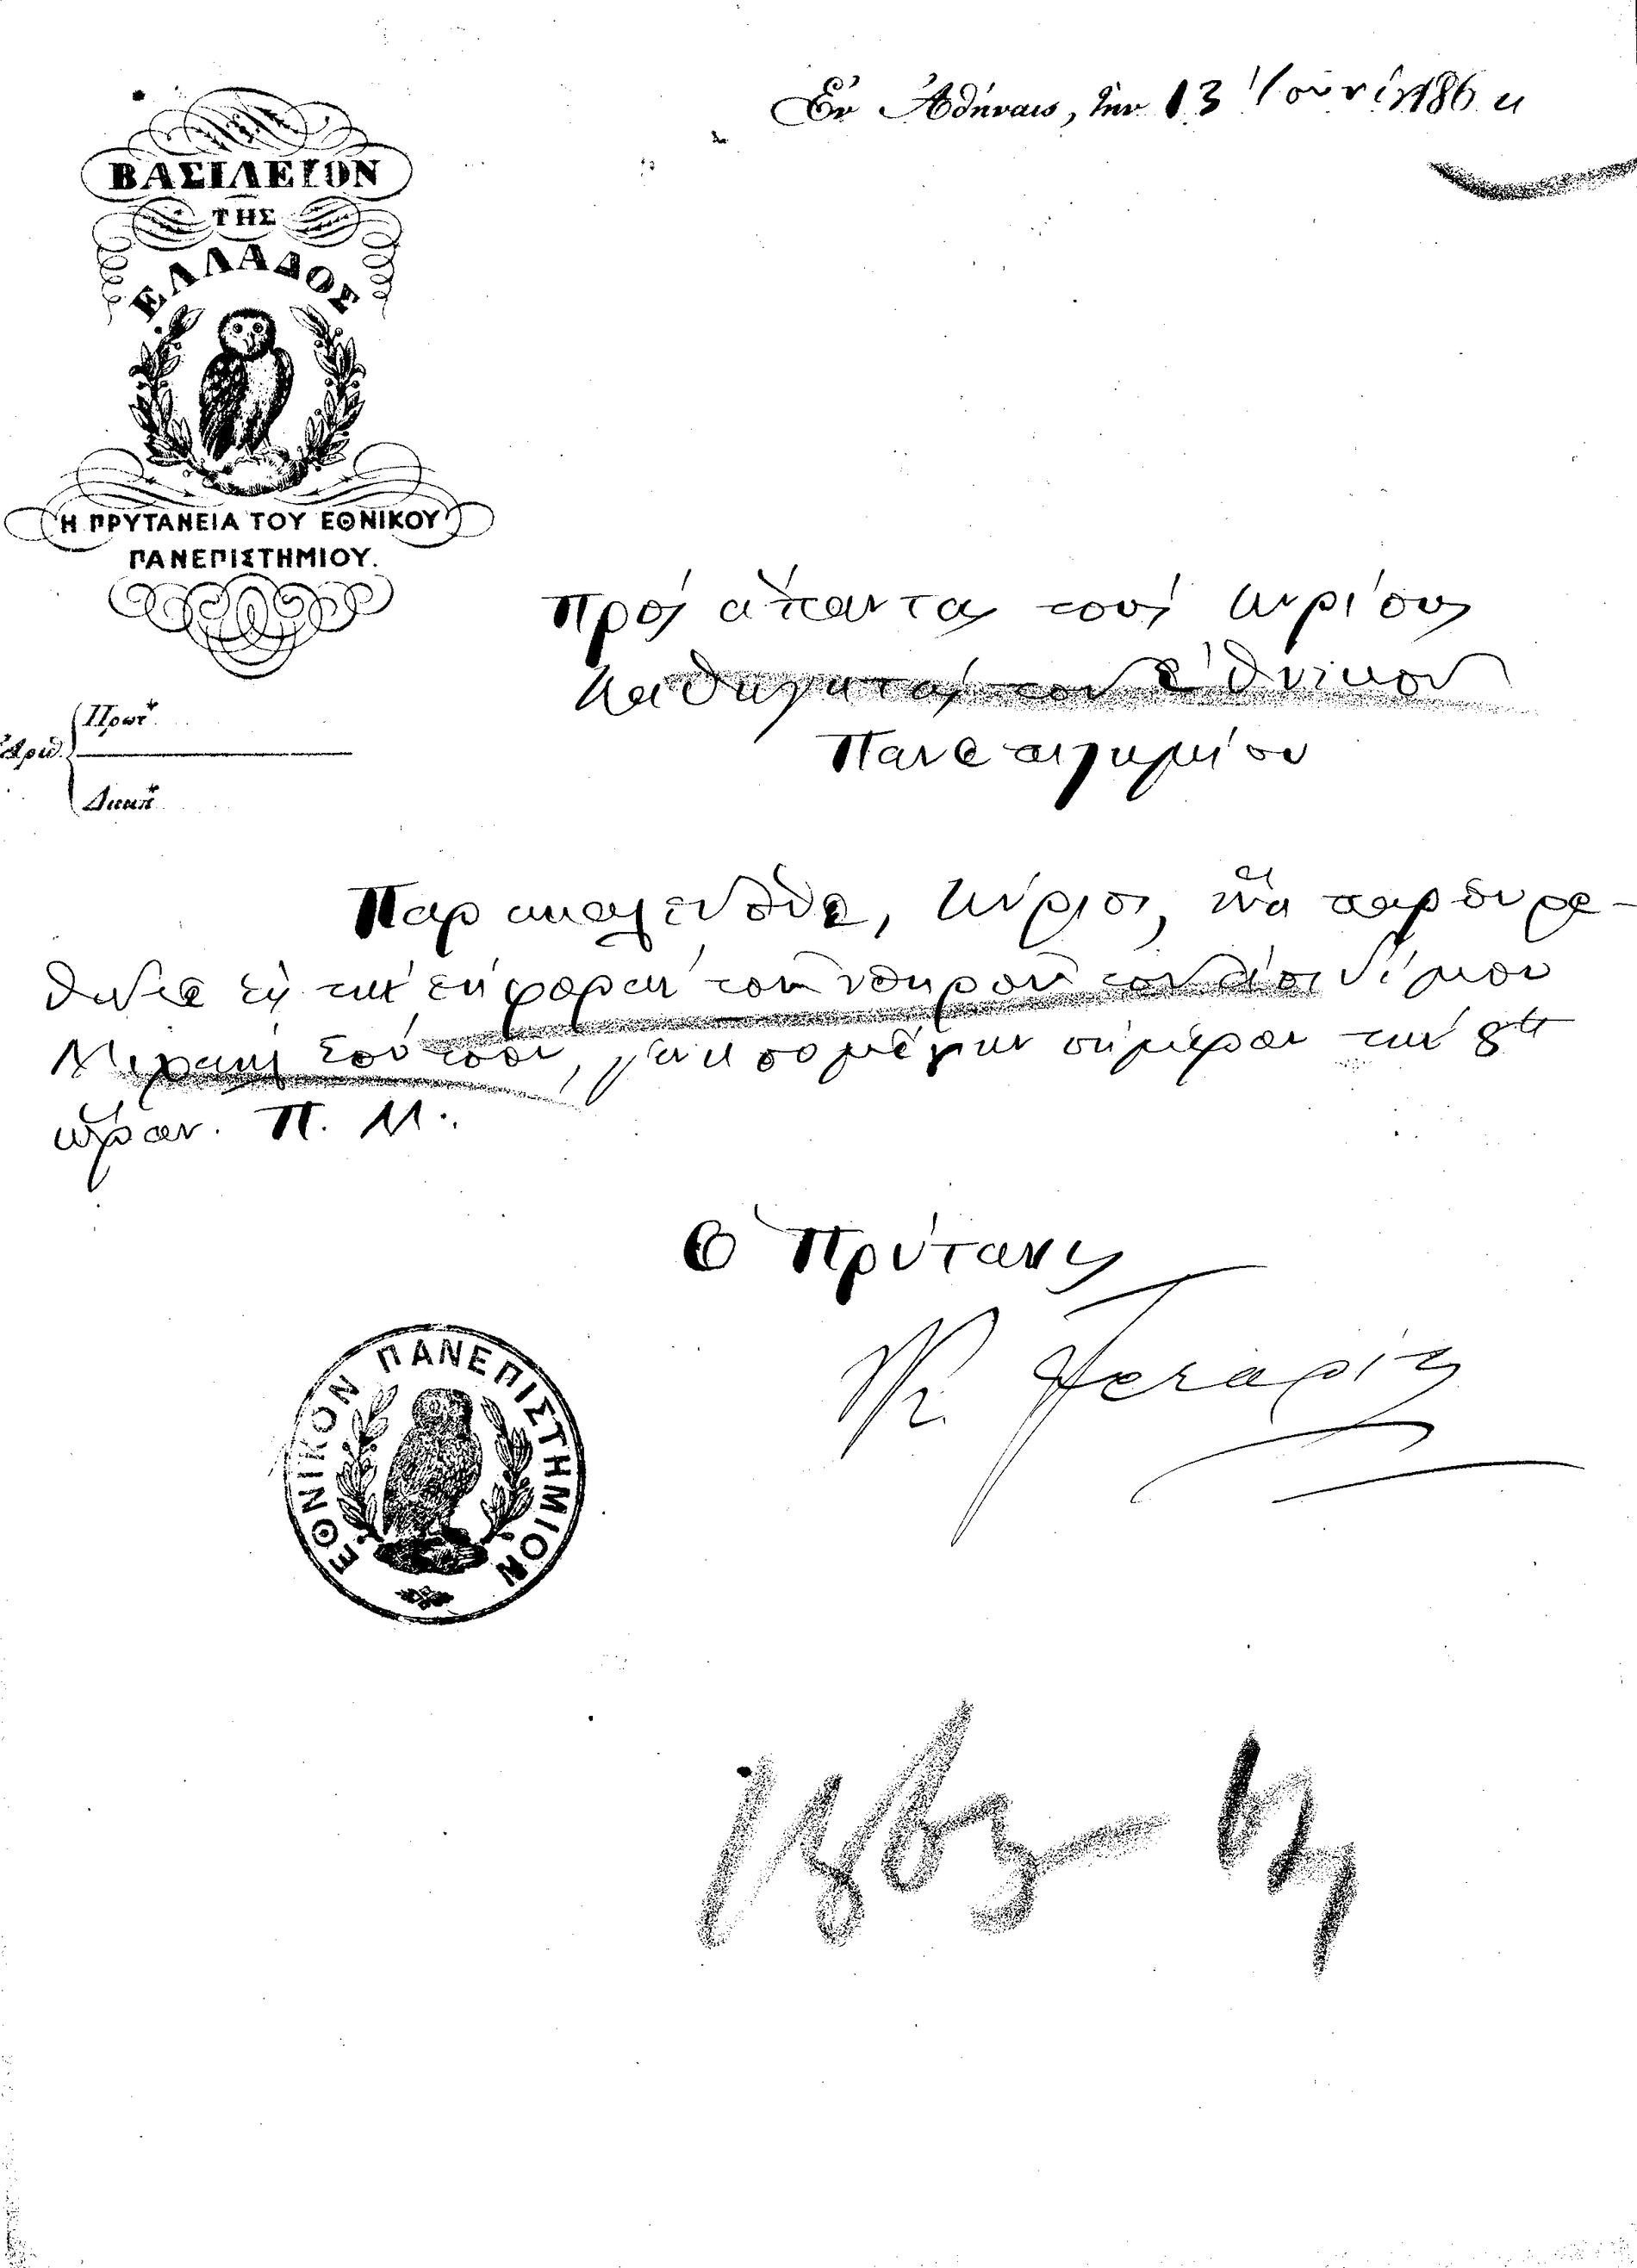 Ἐν Ἀθήναις, τὴν 13 Ἰουνίου 186
ΒΑΣΙΛΕΙΟΝ
ΤΗΣ
ΕΛΛΑΔΟΣ
Η ΠΡΥΤΑΝΕΙΑ ΤΟΥ ΕΘΝΙΚΟΥ
ΠΑΝΕΠΙΣΤΗΜΙΟΥ.
Πρὸς ἅπαντας τοὺς κυρίους
Καθηγητὰς τοῦ Ἐθνικοῦ
Πανεπιστημίου
Πρωτ.
Ἀριθ.
Διεκπ.
Παρακαλεῖσθε, Κύριοι, ἵνα παρευρε-
θῆτε εἰς τὴν ἐκφορὰν τοῦ νεκροῦ τοῦ ἀοιδίμου
Σούτσου, σήμερον τὴν 8ην
ὥραν. Π. Μ.
Ὁ Πρύτανις
ΕΘΝΙΚΟΝ ΠΑΝΕΠΙΣΤΗΜΙΟΝ